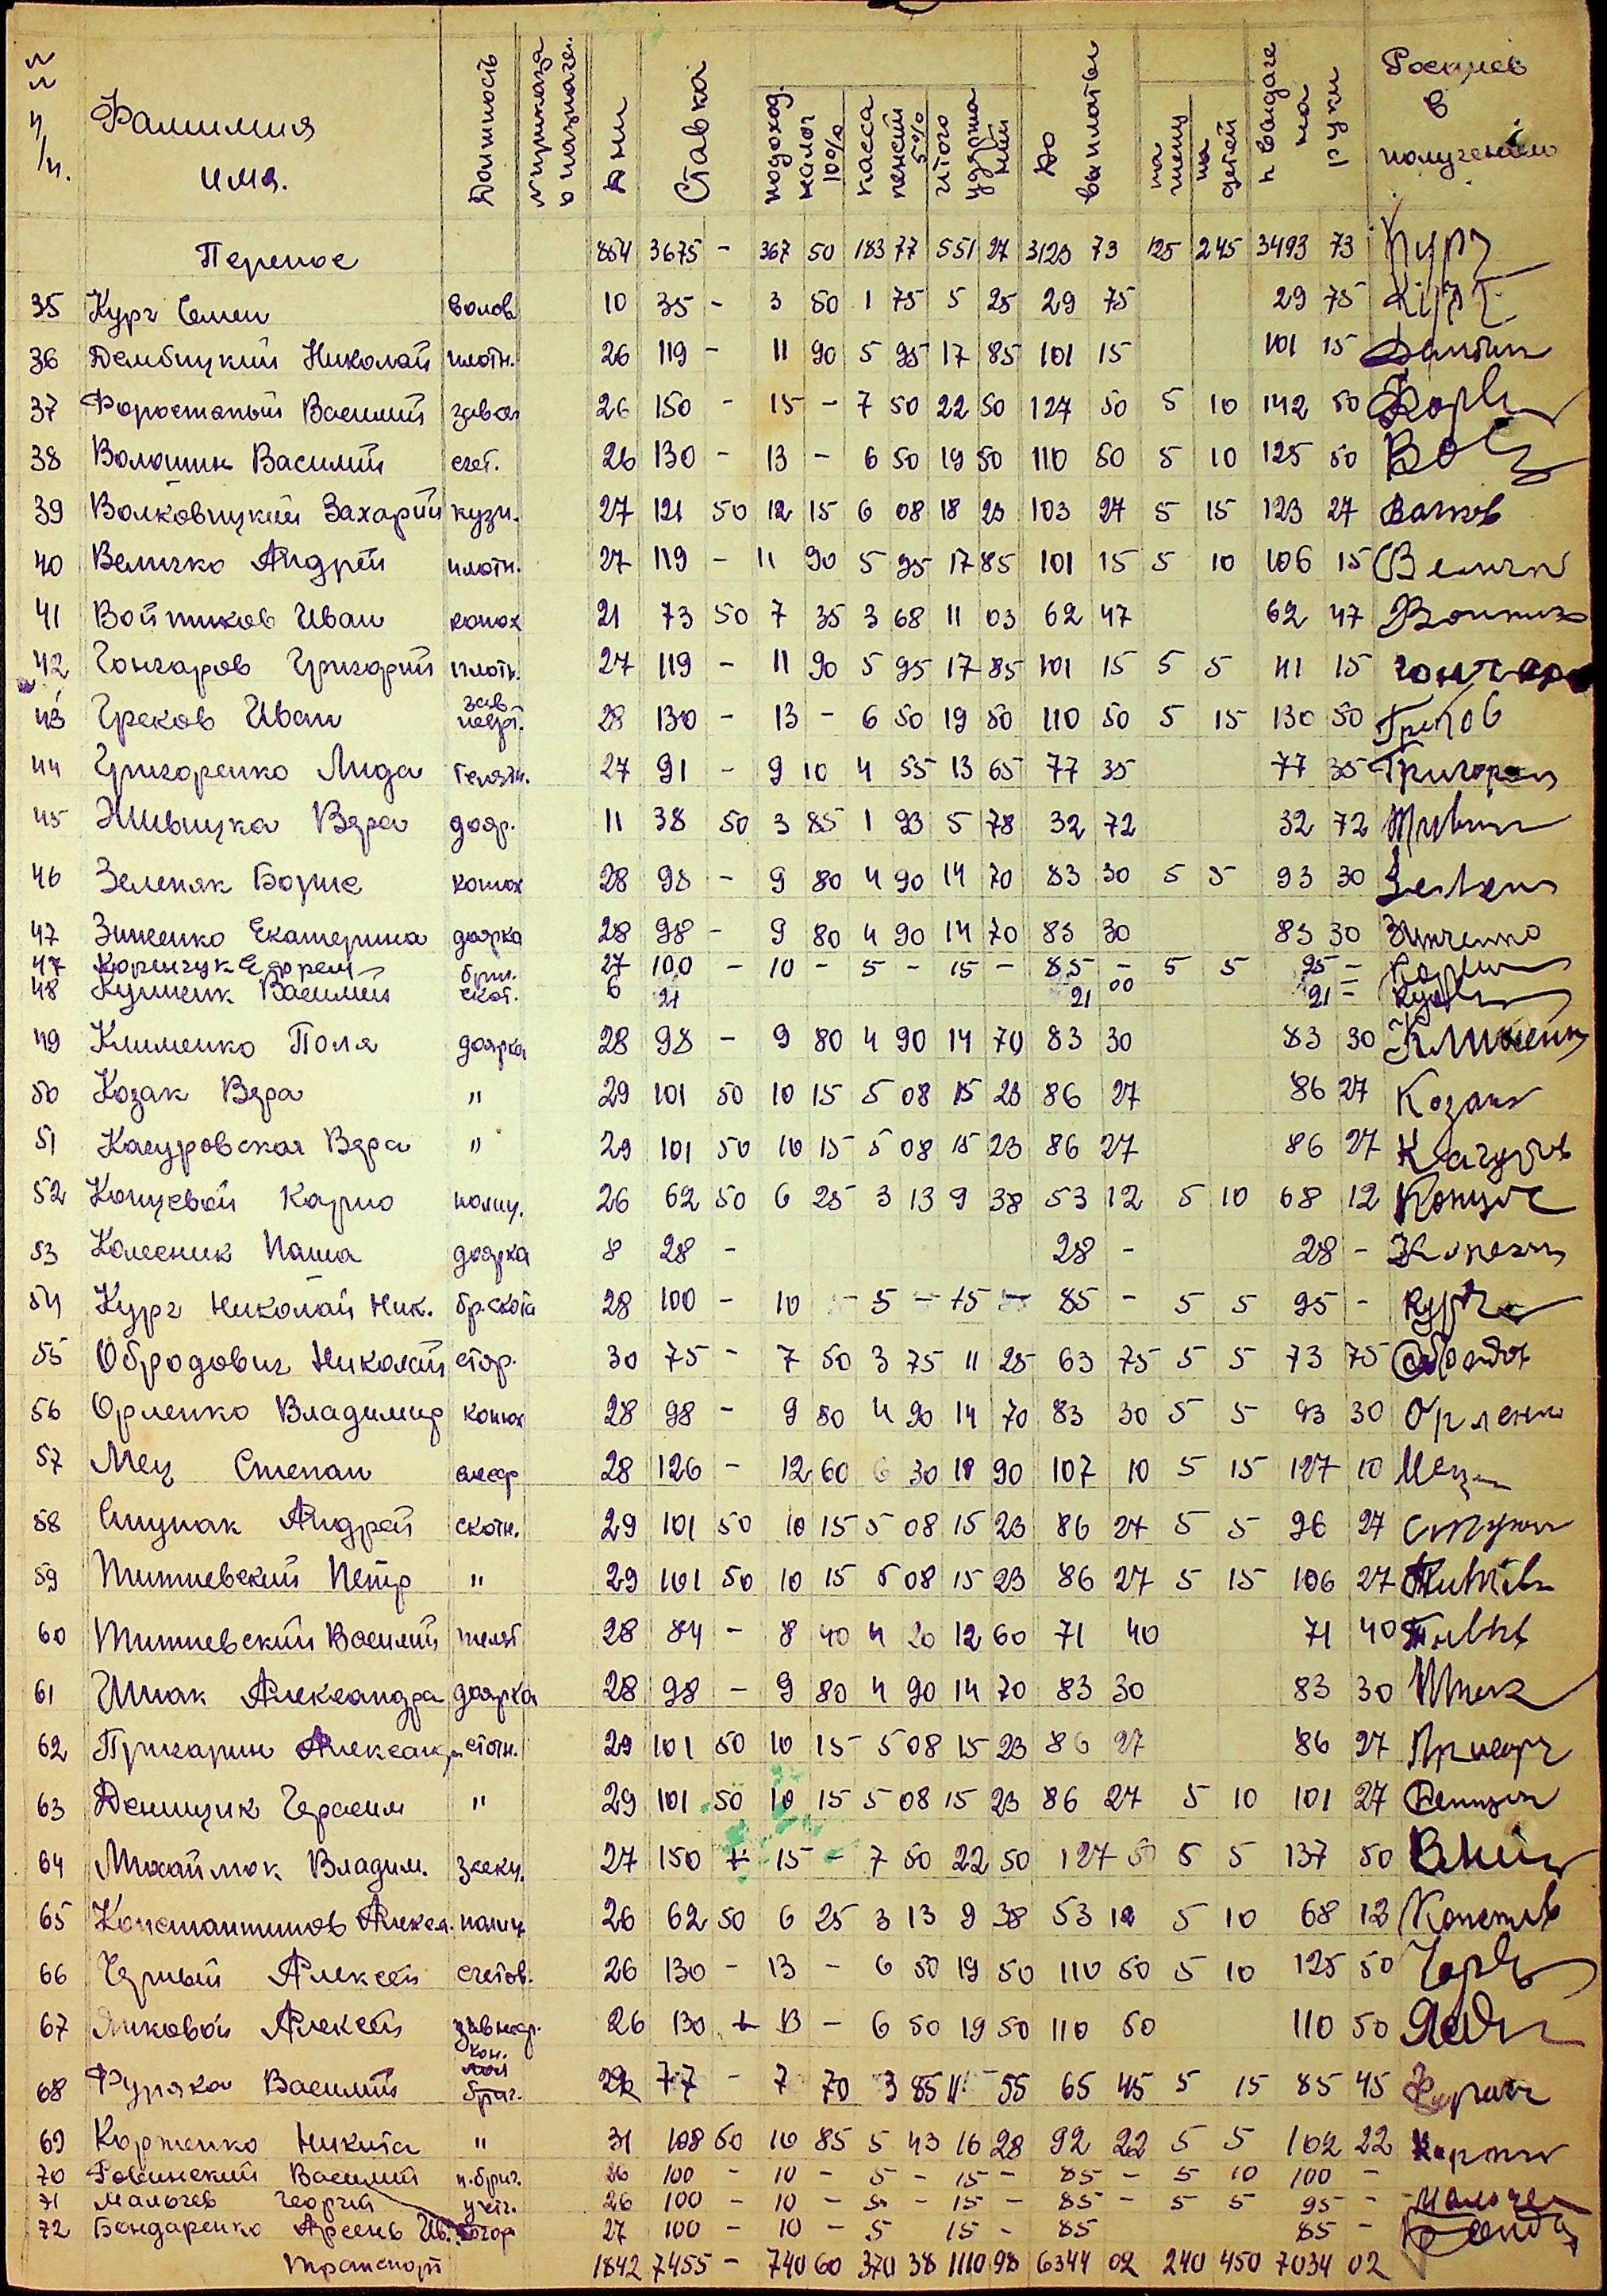 № № п/п. Фамилия имя. Должность № приказа о назначе. Дни Ставка подоход. налог 10% касса пенсий 5% итого удержаний До выплаты на жену на детей к выдаче на руки Роспись в получении
Перенос 854 3675 - 367 50 183 77 551 27 3123 73 125 245 3493 73 Курч
35 Курч Семен волов 10 35 - 3 50 1 75 5 25 29 75 29 75 Курч
36 Дембицкий Николай плотн. 26 119 - 11 90 5 95 17 85 101 15 101 15
37 Форостаный Василий завхоз 26 150 - 15 - 7 50 22 50 127 50 5 10 142 50
38 Волошин Василий счет. 26 130 - 13 - 6 50 19 50 110 50 5 10 125 50
39 Волковицкий Захарий кузн. 27 121 50 12 15 6 08 18 23 103 27 5 15 123 27 Волков
40 Величко Андрей плотн. 27 119 - 11 90 5 95 17 85 101 15 5 10 106 15 Величк
41 Войтиков Иван конюх 21 73 50 7 35 3 68 11 03 62 47 62 47
42 Гончаров Григорий плотн. 27 119 - 11 90 5 95 17 85 101 15 5 5 111 15 гончаро
43 Греков Иван зав. 28 130 - 13 - 6 50 19 50 110 50 5 15 130 50 Греков
44 Григоренко Лида телятн. 27 91 - 9 10 4 55 13 65 77 35 77 35 Григорен
45 Живицка Вера дояр. 11 38 50 3 85 1 93 5 78 32 72 32 72
46 Зеленяк Борис конюх 28 98 - 9 80 4 90 14 70 83 30 5 5 93 30
47 Зинченко Екатерина доярка 28 98 - 9 80 4 90 14 70 83 30 83 30 Зинченко
47 Коренчук Ефрем бриг. 27 100 - 10 - 5 - 15 - 85 - 5 5 95 -
48 Кушнеик Василий скот. 6 21 21 00 21 -
49 Клименко Поля доярка 28 98 - 9 80 4 90 14 70 83 30 83 30 Клименк
50 Козак Вера " 29 101 50 10 15 5 08 15 23 86 27 86 27 Козак
51 Качуровская Вера " 29 101 50 10 15 5 08 15 23 86 27 86 27 Качуров
52 Концевой Карпо полиц. 26 62 50 6 25 3 13 9 38 53 12 5 10 68 12 Концев
53 Колесник Паша доярка 8 28 - 28 - 28 -
54 Курч Николай Ник. бр.скота 28 100 - 10 - 5 - 15 - 85 - 5 5 95 - Курч
55 Обродович Николай стор. 30 75 - 7 50 3 75 11 25 63 75 5 5 73 75
56 Орленко Владимир конюх 28 98 - 9 80 4 90 14 70 83 30 5 5 93 30 Орленко
57 Мец Степан слесар 28 126 - 12 60 6 30 18 90 107 10 5 15 127 10 Мец
58 Ступак Андрей скотн. 29 101 50 10 15 5 08 15 23 86 27 5 5 96 27 Ступак
59 Титиевский Петр " 29 101 50 10 15 5 08 15 23 86 27 5 15 106 27
60 Титиевский Василий телят 28 84 - 8 40 4 20 12 60 71 40 71 40
61 Шпак Александра доярка 28 98 - 9 80 4 90 14 70 83 30 83 30 Шпак
62 Пригарин Александ. скотн. 29 101 50 10 15 5 08 15 23 86 27 86 27
63 Денщик Герасим " 29 101 50 10 15 5 08 15 23 86 27 5 10 101 27 Денщик
64 Михайлюк Владим. 27 150 + 15 - 7 50 22 50 127 50 5 5 137 50
65 Константинов Алексей. полиц 26 62 50 6 25 3 13 9 38 53 12 5 10 68 12
66 Черный Алексей счетов. 26 130 - 13 - 6 50 19 50 110 50 5 10 125 50
67 Яиковой Алексей 26 130 + 13 - 6 50 19 50 110 50 110 50
68 Фуряка Василий бриг. 22 77 - 7 70 3 85 11 55 65 45 5 15 85 45
69 Корженко Никита " 31 108 50 10 85 5 43 16 28 92 22 5 5 102 22
70 Ровинский Василий п.бриг. 26 100 - 10 - 5 - 15 - 85 - 5 10 100 -
71 Малычев Георгий учет. 26 100 - 10 - 5 - 15 - 85 - 5 5 95 -
72 Бондаренко Арсень Ив. 27 100 - 10 - 5 15 - 85 85 -
Транспорт 1842 7455 - 740 60 370 38 1110 98 6344 02 240 450 7034 02